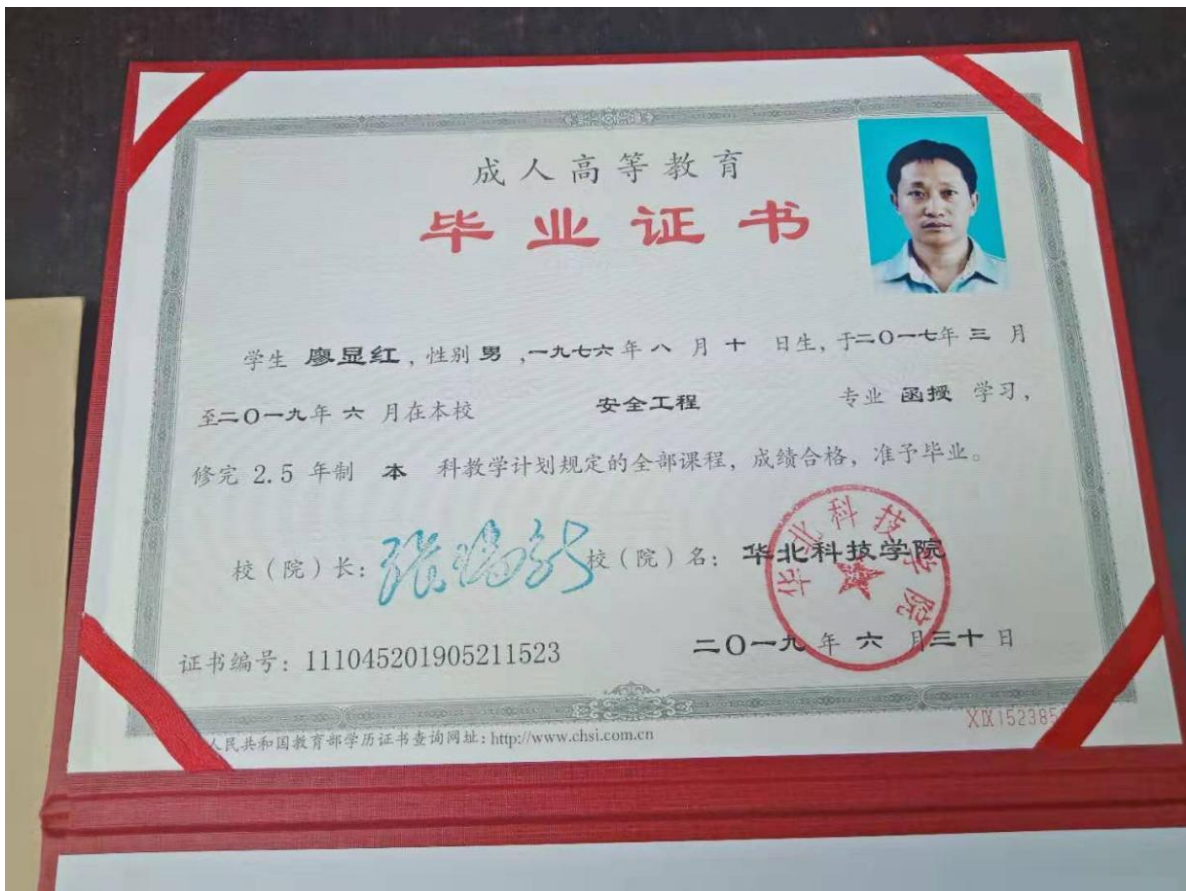 成人高等教育
毕业证书
学生 廖显红，性别 男，一九七六年 八 月 十 日生，于二〇一七年 三 月
至二〇一九年 六 月在本校 安全工程 专业 函授 学习，
修完 2.5 年制 本 科教学计划规定的全部课程，成绩合格，准予毕业。
校（院）长： 校（院）名：华北科技学院
华北科技学院
证书编号：111045201905211523 二〇一九年 六 月三十日
人民共和国教育部学历证书查询网址：http://www.chsi.com.cn